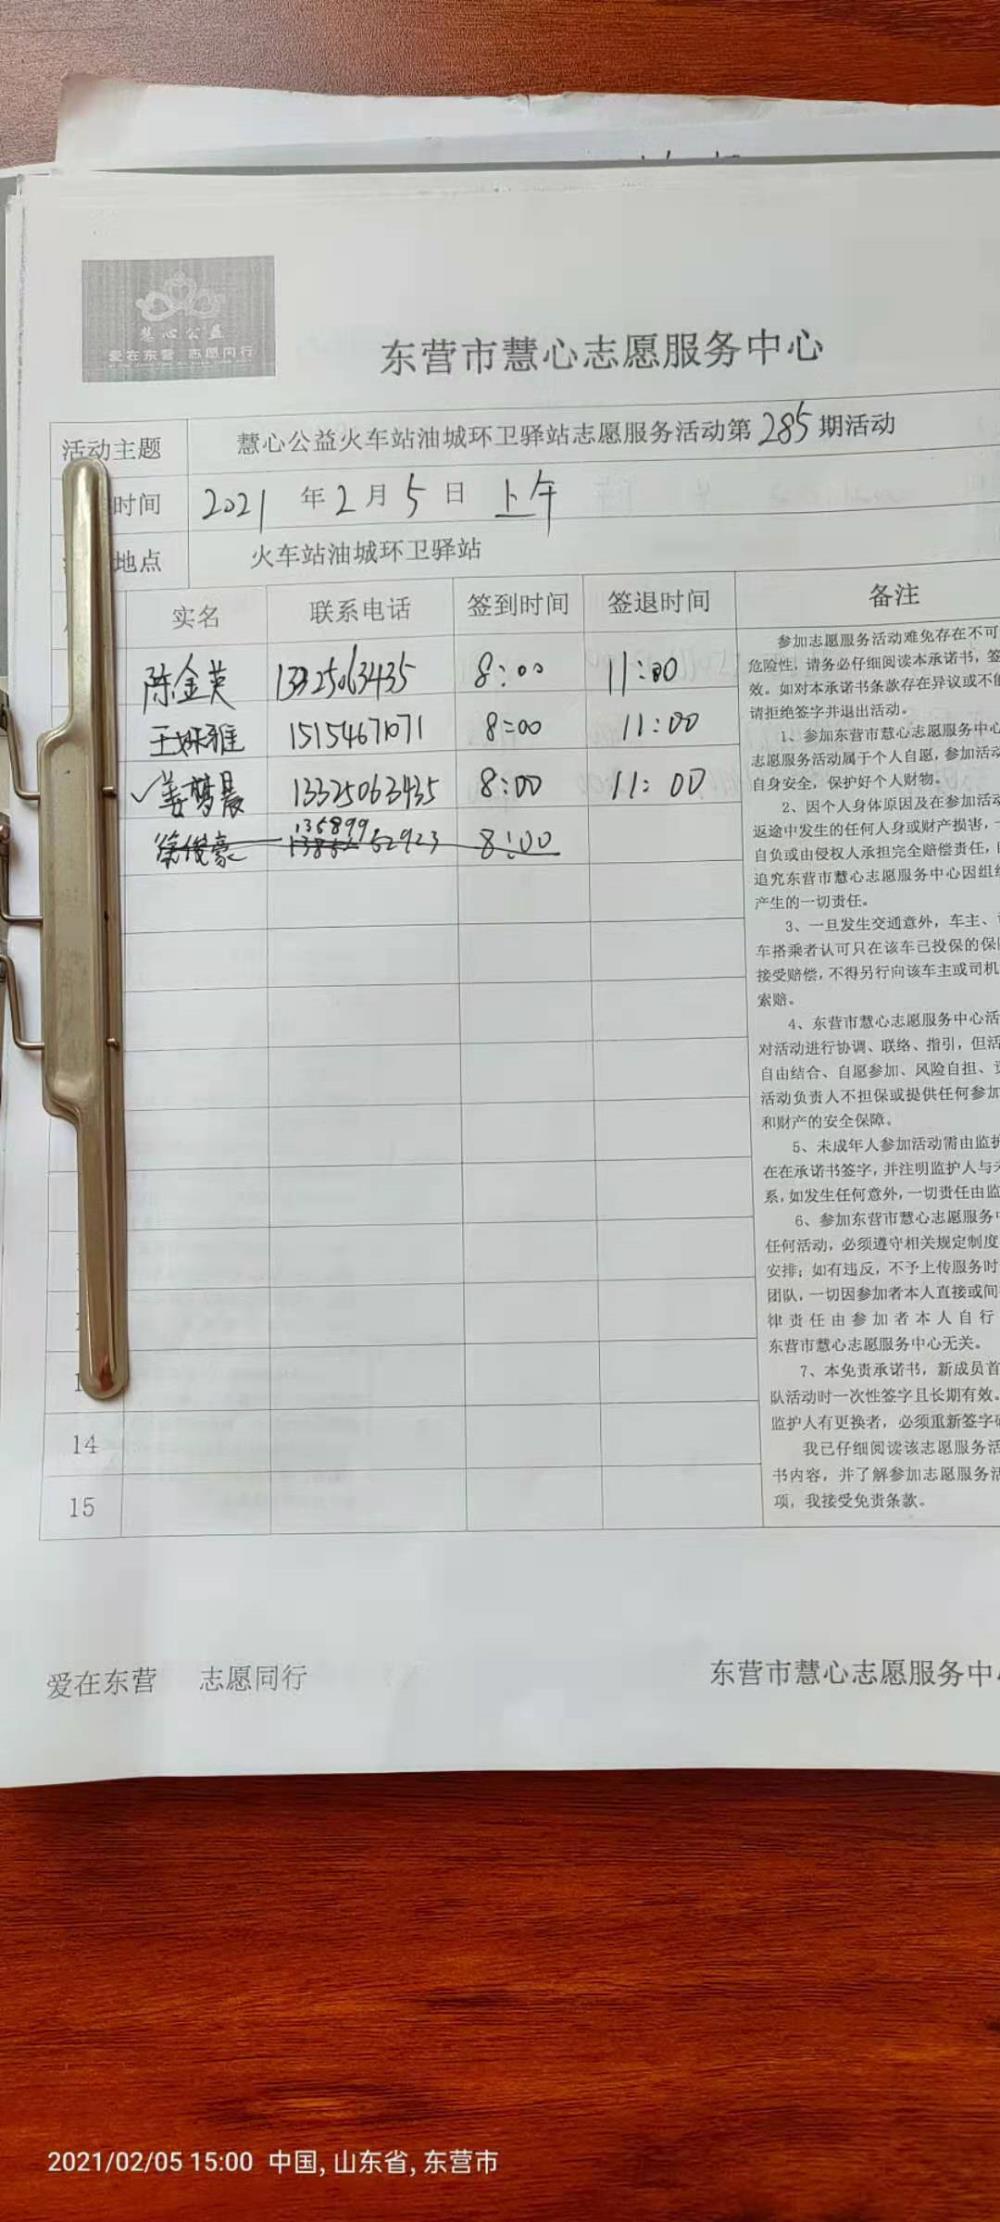 慧心公益
爱在东营 志愿同行
东营市慧心志愿服务中心
活动主题 慧心公益火车站油城环卫驿站志愿服务活动第285期活动
时间 2021年2月5日 上午
地点 火车站油城环卫驿站
实名 联系电话 签到时间 签退时间 备注
陈金英 13325063435 8:00 11:00
王 雅 15154671071 8:00 11:00
✓姜梦晨 13325063435 8:00 11:00
徐俊豪 13689962923 8:00
14
15
参加志愿服务活动难免存在不可
危险性，请务必仔细阅读本承诺书，签
效。如对本承诺书条款存在异议或不能
请拒绝签字并退出活动。
1、参加东营市慧心志愿服务中心
志愿服务活动属于个人自愿，参加活动
自身安全，保护好个人财物。
2、因个人身体原因及在参加活动
返途中发生的任何人身或财产损害，
自负或由侵权人承担完全赔偿责任，
追究东营市慧心志愿服务中心因组织
产生的一切责任。
3、一旦发生交通意外，车主、
车搭乘者认可只在该车已投保的保
接受赔偿，不得另行向该车主或司机
索赔。
4、东营市慧心志愿服务中心活
对活动进行协调、联络、指引，但活
自由结合、自愿参加、风险自担、
活动负责人不担保或提供任何参加
和财产的安全保障。
5、未成年人参加活动需由监护
在在承诺书签字，并注明监护人与
系，如发生任何意外，一切责任由监
6、参加东营市慧心志愿服务中
任何活动，必须遵守相关规定制度
安排；如有违反，不予上传服务时
团队，一切因参加者本人直接或间
律责任由参加者本人自行
东营市慧心志愿服务中心无关。
7、本免责承诺书，新成员首
队活动时一次性签字且长期有效。
监护人有更换者，必须重新签字
我已仔细阅读该志愿服务活
书内容，并了解参加志愿服务活
项，我接受免责条款。
爱在东营 志愿同行 东营市慧心志愿服务中心
2021/02/05 15:00 中国, 山东省, 东营市